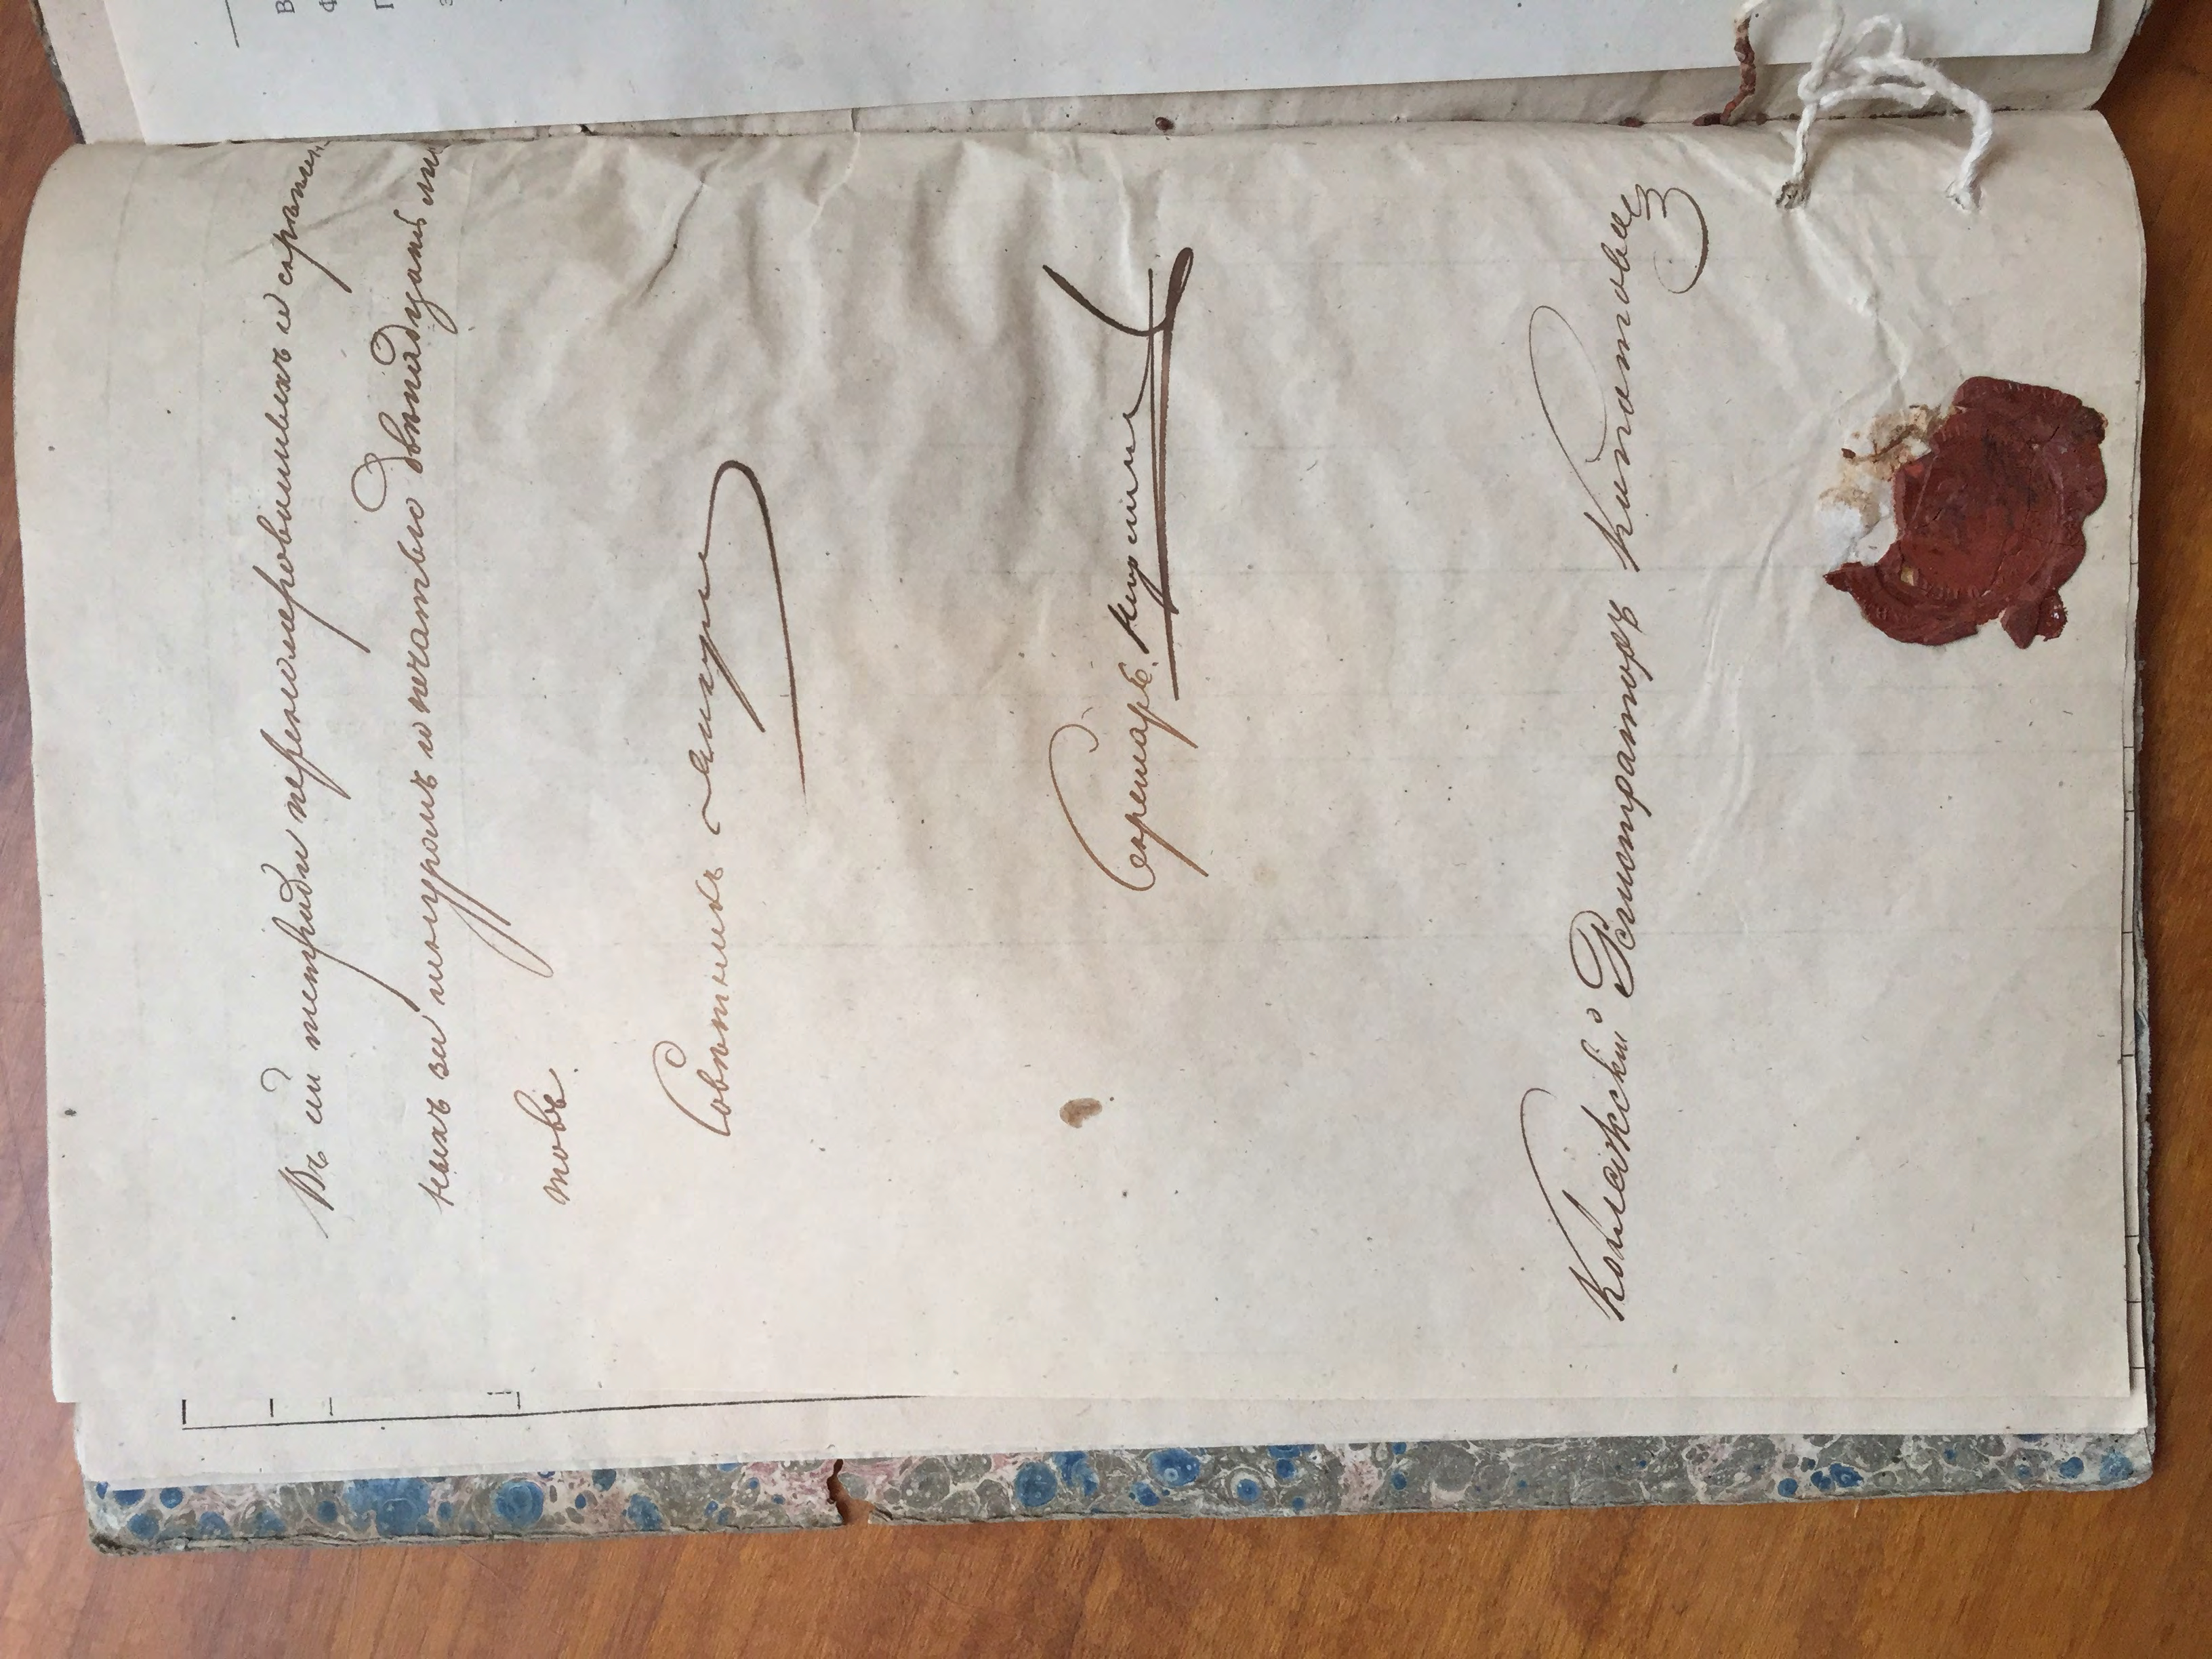 Въ сей тетради перенумерованныхъ и скрѣплен
ныхъ за шнуромъ и печатью двѣнадцать лис
товъ.
Совѣтникъ
Секретарь
Коллежскій Регистраторъ